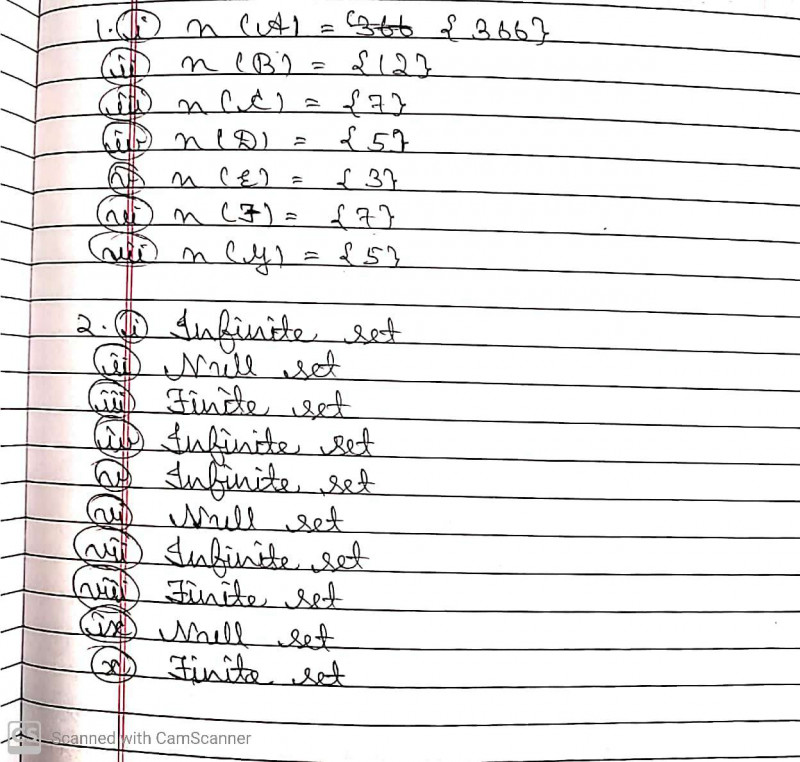 1. (i) n (A) = {366}
(ii) n (B) = {12}
(iii) n (C) = {7}
(iv) n (D) = {5}
(v) n (E) = {3}
(vi) n (F) = {7}
(vii) n (G) = {5}
2. (i) Infinite set
(ii) Null set
(iii) Finite set
(iv) Infinite set
(v) Infinite set
(vi) Null set
(vii) Infinite set
(viii) Finite set
(ix) Null set
(x) Finite set
CS Scanned with CamScanner